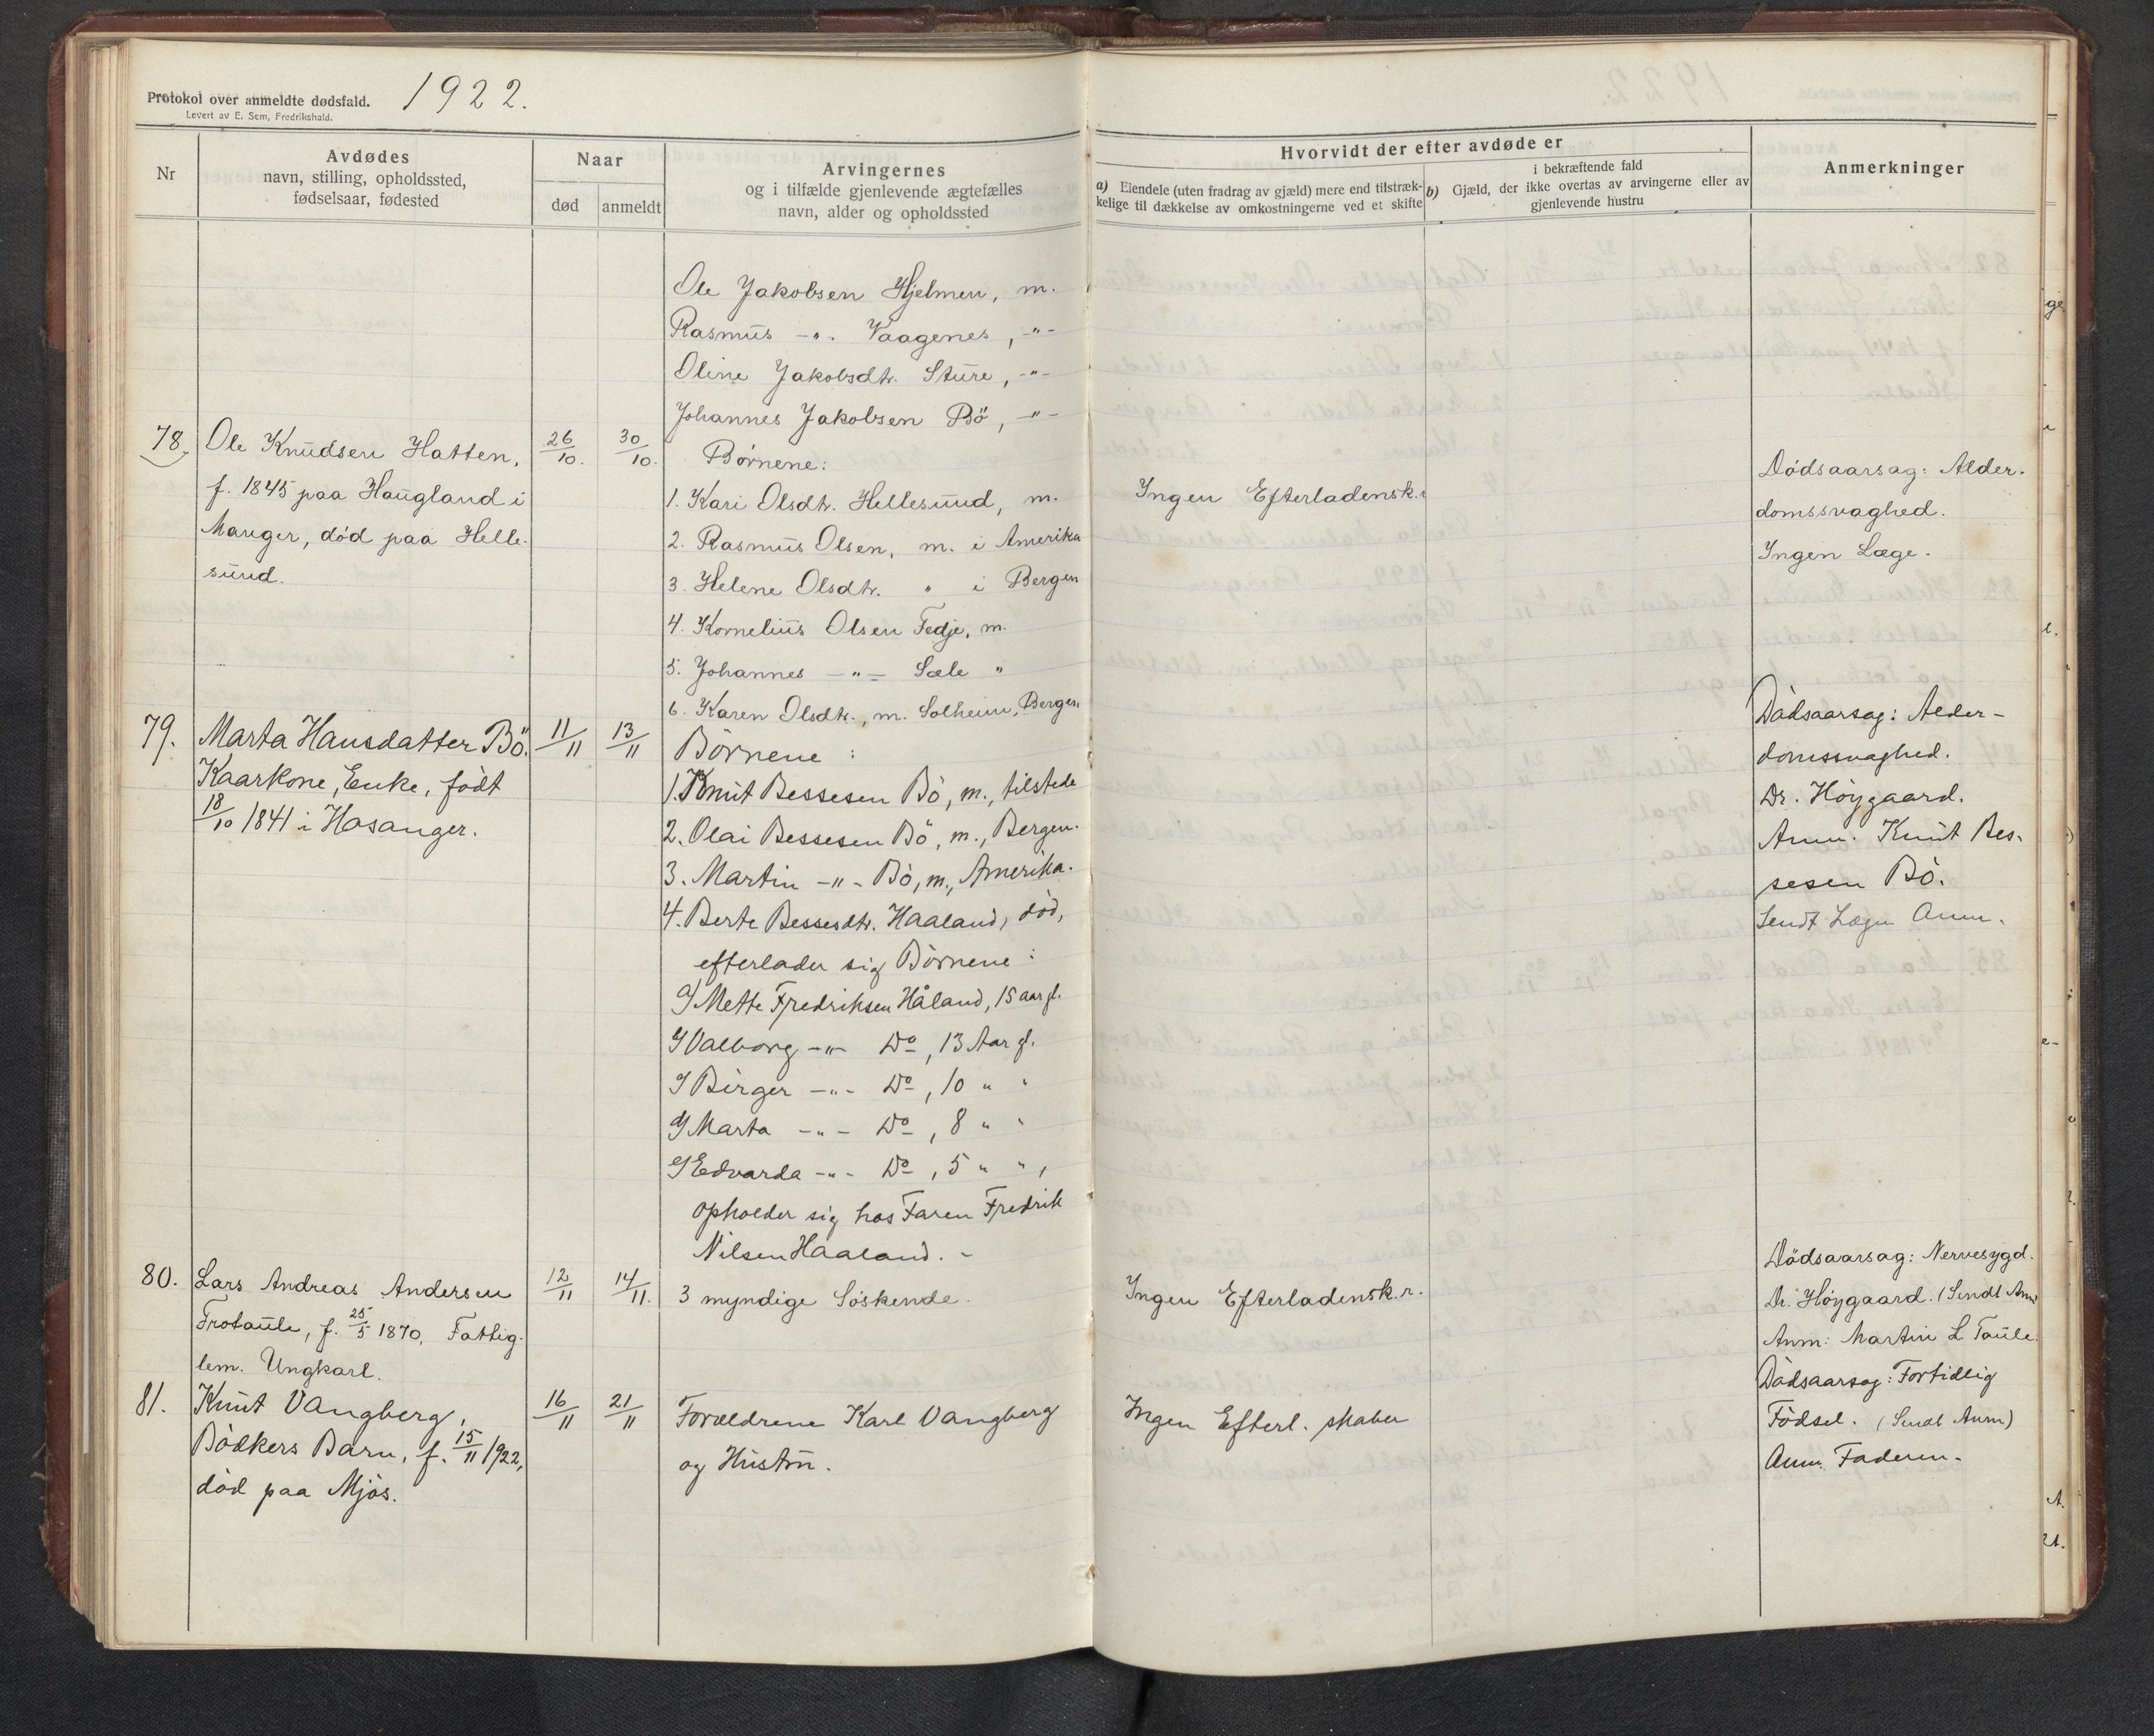 Protokol over anmeldte dødsfald. 1922.
Levert av E. Sem, Fredrikshald.
Nr
Avdødes
navn, stilling, opholdssted,
fødselsaar, fødested
Naar
død
anmeldt
Arvingernes
og i tilfælde gjenlevende ægtefælles
navn, alder og opholdssted
Hvorvidt der efter avdøde er
a) Eiendele (uten fradrag av gjæld) mere end tilstræk-
kelige til dækkelse av omkostningerne ved et skifte
i bekræftende fald
b) Gjæld, der ikke overtas av arvingerne eller av
gjenlevende hustru
Anmerkninger
Ole Jakobsen Hjelmen, m.
Rasmus -"- Vaagenes, -"-
Oline Jakobsdtr. Sture, -"-
Johannes Jakobsen Bö, -"-
78. Ole Knudsen Hatten,
f. 1845 paa Haugland i
Manger, död paa Helle-
sund.
26/10.
30/10.
Börnene:
1. Kari Olsdtr. Hellesund, m.
2. Rasmus Olsen, m. i Amerika
3. Helene Olsdtr. " i Bergen
4. Kornelius Olsen Fedje, m.
5. Johannes -"- Sæle "
6. Karen Olsdtr., m. Solheim, Bergen
Ingen Efterladensk.r
Dödsaarsag: Alder-
domssvaghed.
Ingen Læge.
79. Marta Hansdatter Bö.
Kaarkone, Enke, födt
18/10 1841 i Hosanger.
11/11
13/11
Börnene:
1. Knut Bessesen Bö, m., tilstede
2. Olai Bessesen Bö, m., Bergen.
3. Martin -"- Bö, m., Amerika.
4. Berte Bessesdtr. Haaland, död,
efterlader sig Börnene:
a/ Mette Fredriksen Håland, 15 aar gl.
b/ Valborg -"- Do, 13 Aar gl.
c/ Birger -"- Do, 10 " "
d/ Marta -"- Do, 8 " "
e/ Edvarda -"- Do, 5 " ",
opholder sig hos Faren Fredrik
Nilsen Haaland. -
Dödsaarsag: Alder-
domssvaghed.
Dr. Höygaard.
Anm. Knut Bes-
sesen Bö.
Sendt Lægen Anm.
80. Lars Andreas Andersen
Trotaule, f. 25/5 1870, Fattig-
lem. Ungkarl.
12/11
14/11.
3 myndige Söskende.
Ingen Efterladensk.r.
Dödsaarsag: Nervesygd.
Dr. Höygaard. (Sendt Anm
Anm: Martin L. Taule.
81. Knut Vangberg,
Bödkers Barn, f. 15/11 1922,
död paa Mjös.
16/11
21/11
Forældrene Karl Vangberg
og Hustru.
Ingen Efterl. skaber
Dödsaarsag: Fortidlig
Födsel. (Sendt Anm)
Anm. Faderen.